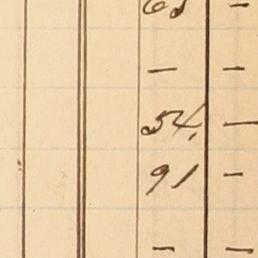 — —
54. —
91 —
— —